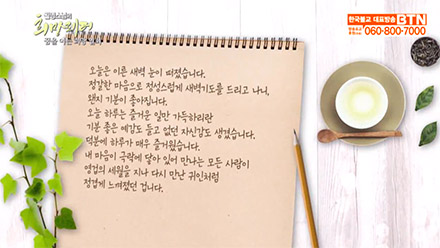 한국불교 대표방송 BTN
060-800-7000
희망편지
오늘은 이른 새벽 눈이 떠졌습니다.
정갈한 마음으로 정성스럽게 새벽기도를 드리고 나니,
왠지 기분이 좋아집니다.
오늘 하루는 즐거운 일만 가득하리란
기분 좋은 예감도 들고 없던 자신감도 생겼습니다.
덕분에 하루가 매우 즐거웠습니다.
내 마음이 극락에 닿아 있어 만나는 모든 사람이
영겁의 세월을 지나 다시 만난 귀인처럼
정겹게 느껴졌던 겁니다.